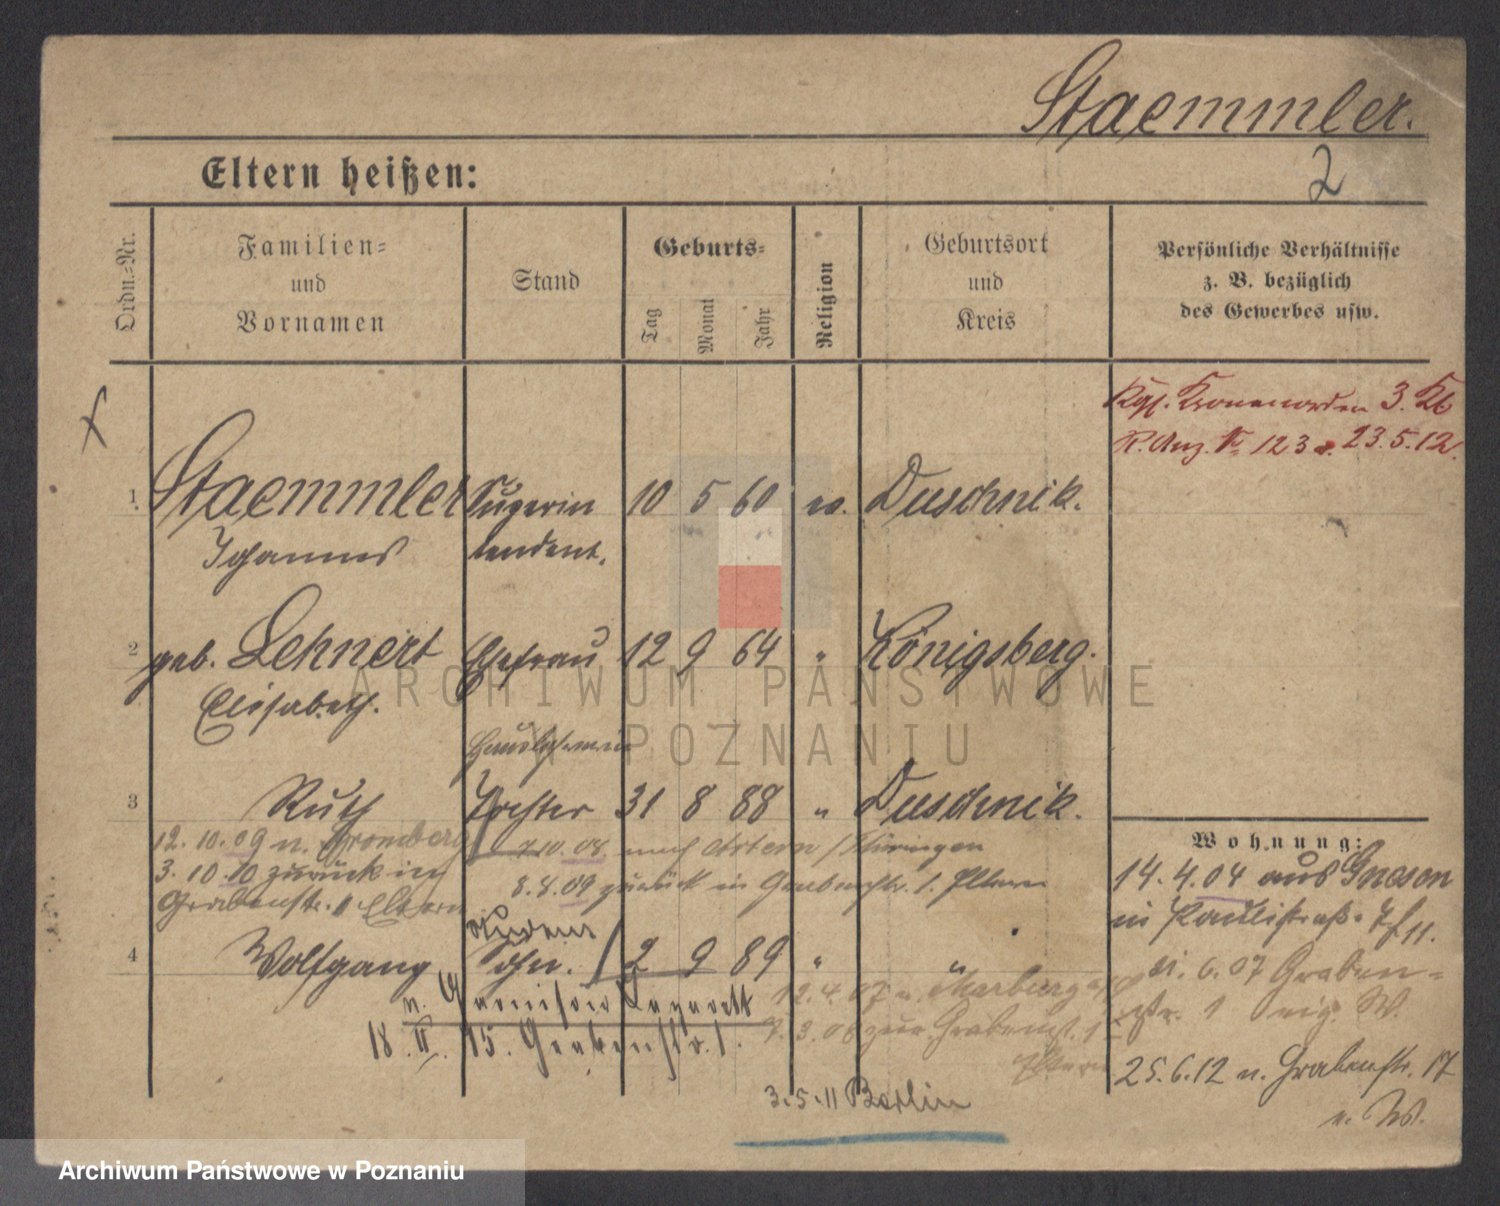 Staemmler.
2
Eltern heißen:
Ordn.=Nr.
Familien=
und
Vornamen
Stand
Geburts=
Tag
Monat
Jahr
Religion
Geburtsort
und
Kreis
Persönliche Verhältnisse
z. B. bezüglich
des Gewerbes usw.
Kgl. Kronenorden 3. Kl
R. Anz. No 123 v. 23.5.12.
1 Staemmler Superin 10 5 60 ev. Duschnik.
Johannes tendent.
2 geb. Lehnert Ehefrau 12 9 64 " Königsberg.
Elisabeth.
3 Ruth Tochter 31 8 88 " Duschnik.
12.10.09 n. Bromberg 7.10.08. nach Artern/Thüringen
3.10.10 zurück in 8.8.09 zurück in Grabenstr. 1. Eltern
Grabenstr. 1 Eltern
Student
4 Wolfgang Sohn. 2 9 89 " "
12.4.07 n. Marburg
n. Garnison Lazarett
7.3.08 zur. Grabenst. 1
18.II.15. Grabenstr. 1.
Eltern
3.5.11 Berlin
Wohnung:
14.4.04 aus Gnesen
in Paulistraße 11.
6.07 Graben=
str. 1 eig. W.
25.6.12 n. Grabenstr. 17
W.
ARCHIWUM PAŃSTWOWE
W POZNANIU
Archiwum Państwowe w Poznaniu